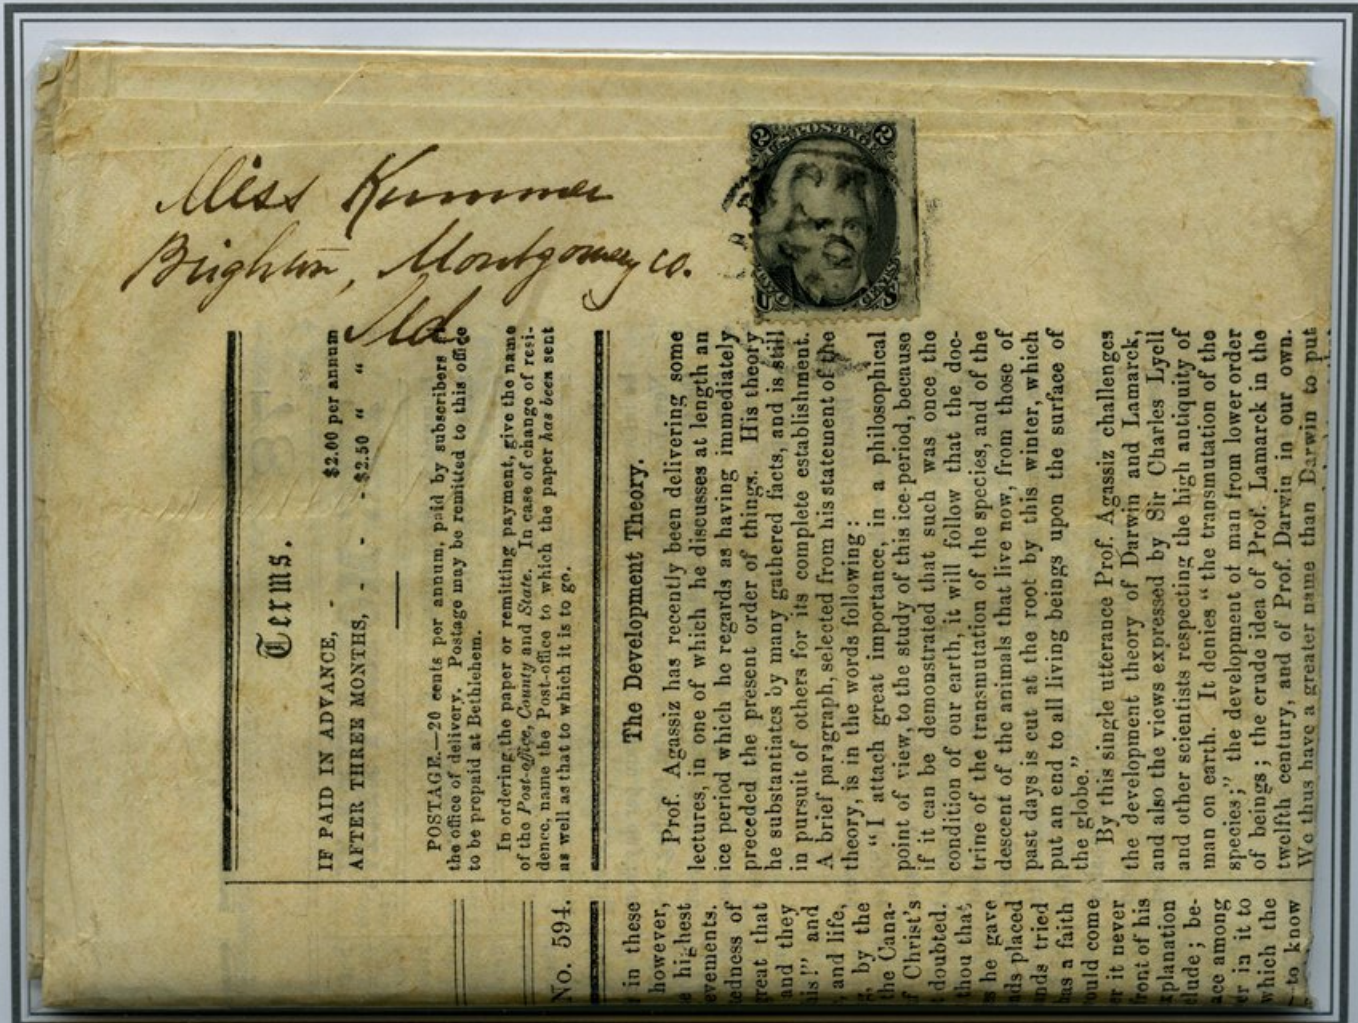 Miss Kummer
Brighton, Montgomery co.
Md
2 U.S. POSTAGE 2
Terms.
IF PAID IN ADVANCE, - $2.00 per annum
AFTER THREE MONTHS, - - - $2.50 " "
POSTAGE.—20 cents per annum, paid by subscribers at
the office of delivery. Postage may be remitted to this office
to be prepaid at Bethlehem.
In ordering the paper or remitting payment, give the name
of the Post-office, County and State. In case of change of resi-
dence, name the Post-office to which the paper has been sent
as well as that to which it is to go.
The Development Theory.
Prof. Agassiz has recently been delivering some
lectures, in one of which he discusses at length an
ice period which he regards as having immediately
preceded the present order of things. His theory
he substantiates by many gathered facts, and is still
in pursuit of others for its complete establishment.
A brief paragraph, selected from his statement of the
theory, is in the words following:
"I attach great importance, in a philosophical
point of view, to the study of this ice-period, because
if it can be demonstrated that such was once the
condition of our earth, it will follow that the doc-
trine of the transmutation of the species, and of the
descent of the animals that live now, from those of
past days is cut at the root by this winter, which
put an end to all living beings upon the surface of
the globe."
By this single utterance Prof. Agassiz challenges
the development theory of Darwin and Lamarck,
and also the views expressed by Sir Charles Lyell
and other scientists respecting the high antiquity of
man on earth. It denies "the transmutation of the
species;" the development of man from lower order
of beings; the crude idea of Prof. Lamarck in the
twelfth century, and of Prof. Darwin in our own.
We thus have a greater name than Darwin to put
No. 594.
in these
however,
highest
evements.
edness of
reat that
and they
his!" and
and life,
by the
the Cana-
f Christ's
doubted.
thou that
he gave
nds placed
nds tried
has a faith
ould come
er it never
front of his
xplanation
elude; be-
ace among
er in it to
which the
to know